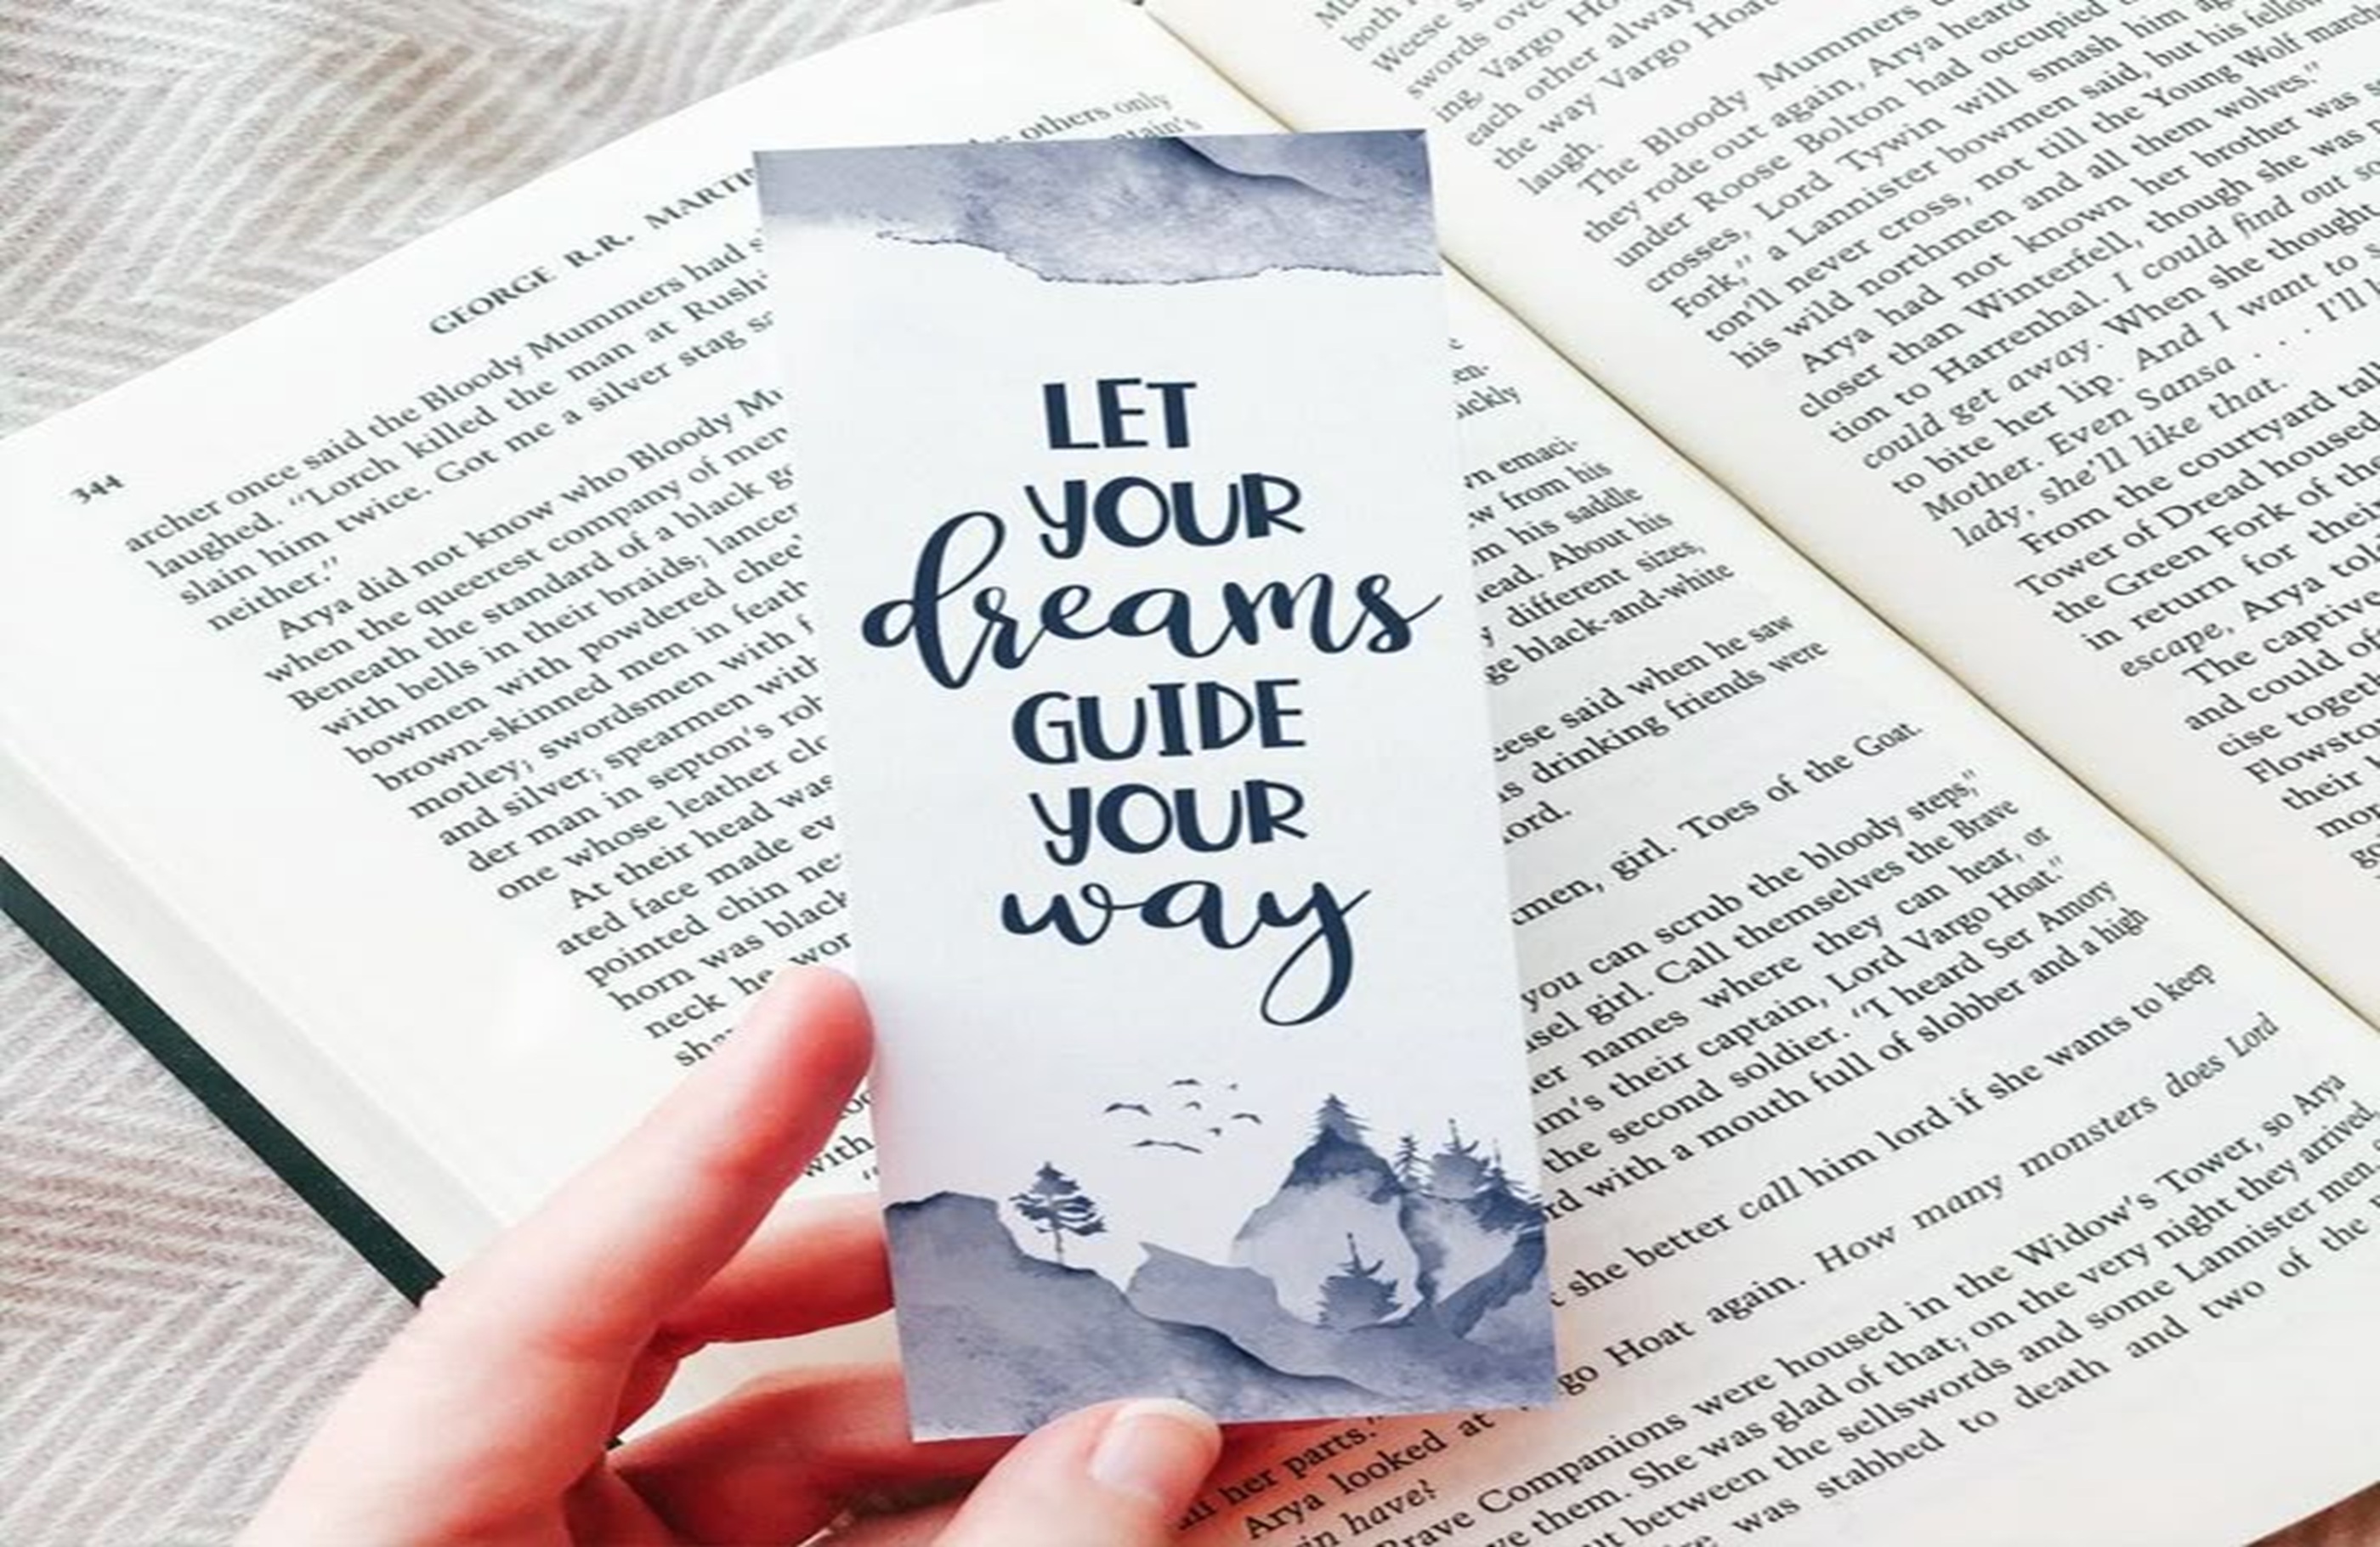 344
GEORGE R.R. MARTIN
others only
archer once said the Bloody Mummers had
laughed. "Lorch killed the man at
slain him twice. Got me a silver stag
neither."
Arya did not know who Bloody
when the queerest company of men
Beneath the standard of a black
with bells in their braids; lancer
bowmen with powdered
brown-skinned men in
motley; swordsmen with
and silver; spearmen with
der man in septon's
one whose leather
At their head was
ated face made
pointed chin
horn was black
neck he
with
LET
YOUR
dreams
GUIDE
YOUR
way
emaci-
from his
his saddle
About his
different sizes,
black-and-white
said when he saw
drinking friends were
girl. Toes of the Goat.
you can scrub the bloody steps,"
girl. Call themselves the Brave
names where they can hear, or
their captain, Lord Vargo Hoat."
the second soldier. "I heard Ser Amory
with a mouth full of slobber and a high
she better call him lord if she wants to keep
her parts."
Arya looked at
Hoat again. How many monsters does Lord
have?
Brave Companions were housed in the Widow's Tower, so Arya
them. She was glad of that; on the very night they arrived,
between the sellswords and some Lannister men
was stabbed to death and two of the
both
Weese
swords
Vargo
each other
the way Vargo Hoat
laugh.
The Bloody Mummers
they rode out again, Arya heard
under Roose Bolton had occupied
crosses, Lord Tywin will smash him
Fork," a Lannister bowmen said, but his fellow
ton'll never cross, not till the Young Wolf
his wild northmen and all them wolves."
Arya had not known her brother was
closer than Winterfell, though she was
tion to Harrenhal. I could find out
could get away. When she thought
to bite her lip. And I want to
Mother. Even Sansa . . . I'll
lady, she'll like that.
From the courtyard
Tower of Dread housed
the Green Fork of the
in return for their
escape, Arya told
The captive
and could
cise
their